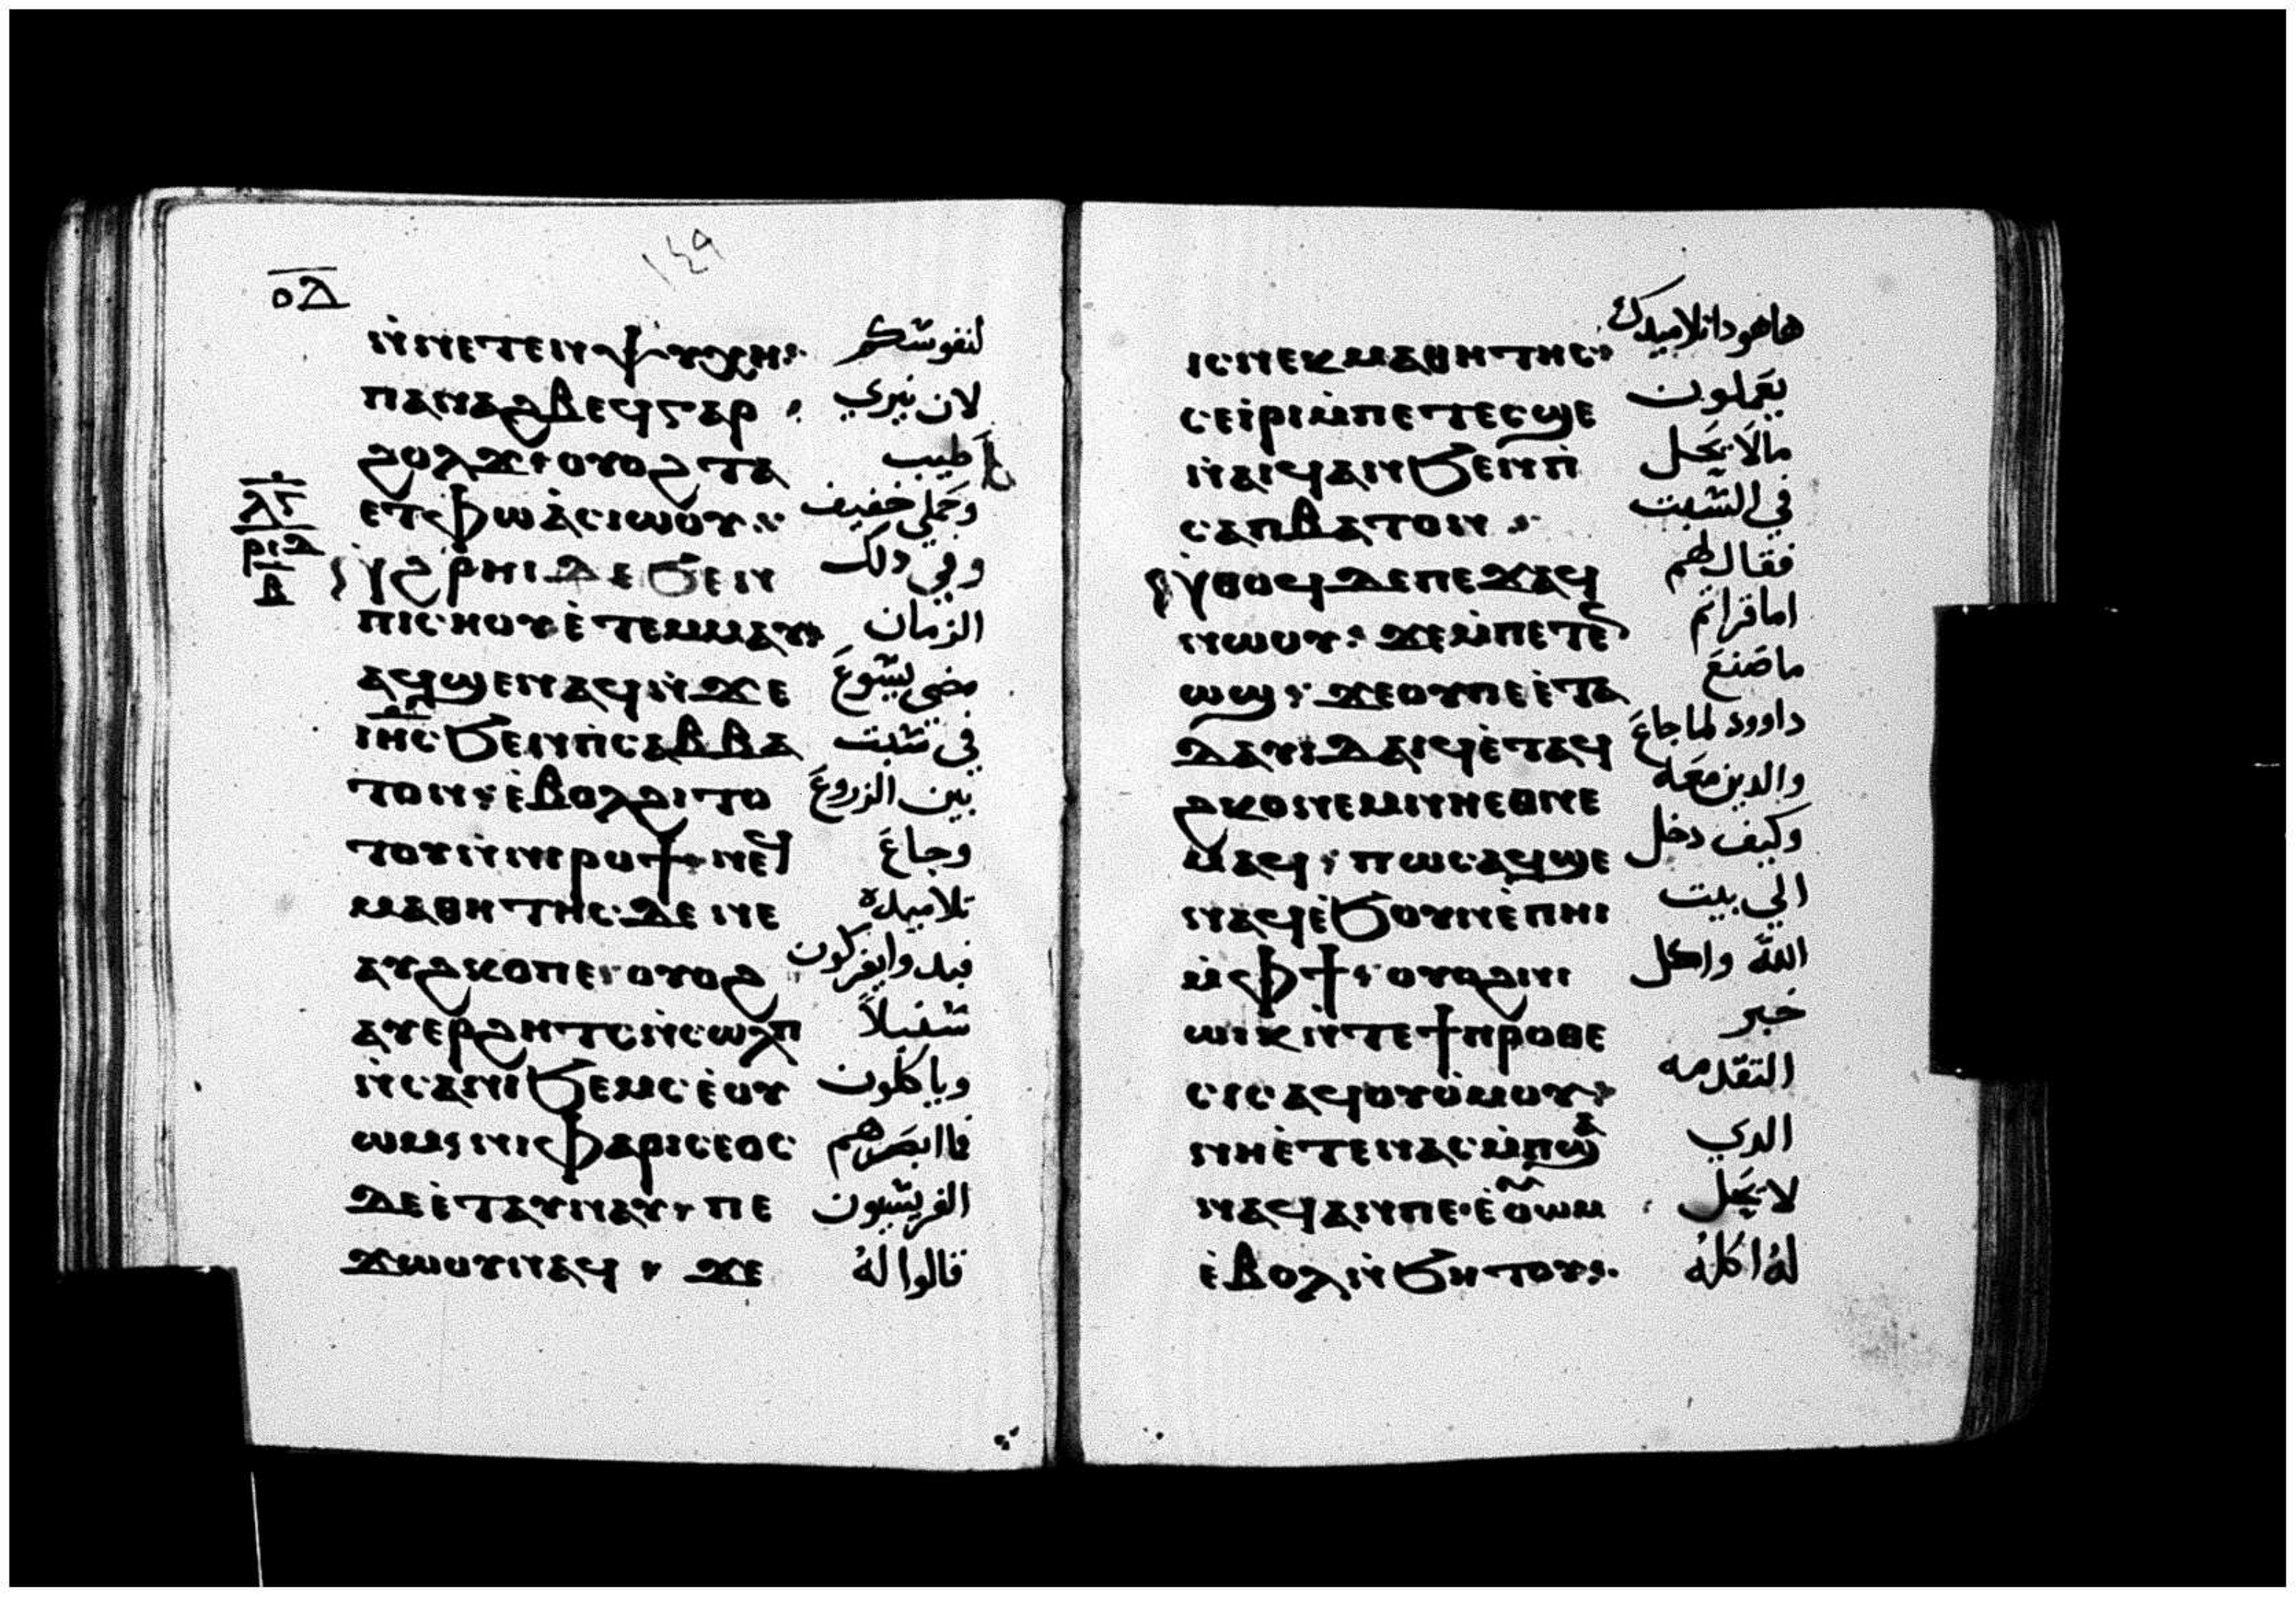 ⲟ̅ⲇ̅
١٤٩
ⲛ̀ⲛⲉⲧⲉⲛⲯⲩⲭⲏ· لنفوسكم
ⲡⲁⲛⲁϩⲃⲉϥⲅⲁⲣ · لان نيري
ϩⲟⲗϫ· ⲟⲩⲟϩ ⲧⲁ طيب
ⲉⲧⲫⲱ ⲁ̀ⲥⲓⲱⲟⲩ · وحملي خفيف
ⲛ̀ϩⲣⲏⲓ ⲇⲉ ϧⲉⲛ وفي دلك
ⲡⲓⲥⲏⲟⲩ ⲉ̀ⲧⲉⲙⲙⲁⲩ الزمان
ⲁϥϣⲉⲛⲁϥⲛ̀ϫⲉ مضى يسوع
ⲓⲏⲥ ϧⲉⲛⲡ̀ⲥⲁⲃⲃⲁ في سبت
ⲧⲟⲛ · ⲉ̀ⲃⲟⲗϩⲓⲧⲟ بين الزروع
ⲧⲟⲩⲛ̀ⲛⲓⲣⲟϯ· ⲛⲉϥ وجاع
ⲙⲁⲑⲏⲧⲏⲥ ⲇⲉ ⲛⲉ تلاميده
ⲁⲩϩⲕⲟⲡⲉ· ⲟⲩⲟϩ فبدوا يفركون
ⲁⲩⲉⲣϩⲏⲧⲥⲛ̀ⲥⲱⲗⲡ سنبلاً
ⲛ̀ⲥⲁⲛⲓϧⲉⲙⲥ ⲉ̀ⲟⲩ وياكلون
ⲱⲙ· ⲛⲓⲫⲁⲣⲓⲥⲉⲟⲥ فاابصرهم
ⲇⲉ ⲉ̀ⲧⲁⲩⲛⲁⲩ· ⲡⲉ الفريسيون
ϫⲱⲟⲩⲛⲁϥ · ϫⲉ قالوا له
ⲓⲥⲛⲉⲕⲙⲁⲑⲏⲧⲏⲥ· هاهودا تلاميدك
ⲥⲉⲓ̀ⲣⲓⲙ̀ⲡⲉⲧⲉⲥϣⲉ يعملون
ⲛ̀ⲁⲓϥⲁⲛϧⲉⲛⲡ̀ مالا يحل
ⲥⲁⲡⲃⲁⲧⲟⲛ · في السبت
ⲛ̀ⲑⲟϥⲇⲉⲡⲉϫⲁϥ فقال لهم
ⲛⲱⲟⲩ· ϫⲉⲙ̀ⲡⲉⲧⲉⲛ اما قراتم
ⲱϣ· ϫⲉⲟⲩⲡⲉⲉ̀ⲧⲁ ما صنع
ⲇⲁⲩⲓⲇⲁⲓϥⲉ̀ⲧⲁϥ داوود لما جاع
ϩⲕⲟⲛⲉⲙⲛⲏⲉⲑⲛⲉ والدين معه
ⲙⲁϥ· ⲡⲱⲥⲁϥϣⲉ وكيف دخل
ⲛⲁϥⲉ̀ϧⲟⲩⲛⲉ̀ⲡⲏⲓ الي بيت
ⲙ̀ⲫϯ· ⲟⲩⲟϩⲛⲓ الله واكل
ⲱⲓⲕⲛ̀ⲧⲉϯⲡⲣⲟⲑⲉ خبز
ⲥⲓⲥⲁϥⲟⲩⲟ̀ⲙⲟⲩ· التقدمه
ⲛⲏⲉ̀ⲧⲉⲛⲁⲥⲙ̀ⲡϣⲁ الدي
ⲛⲁϥⲁⲛⲡⲉ·ⲉ̀ⲟⲩⲱⲙ لا يحل
ⲉ̀ⲃⲟⲗⲛ̀ϧⲏⲧⲟⲩ· له اكله